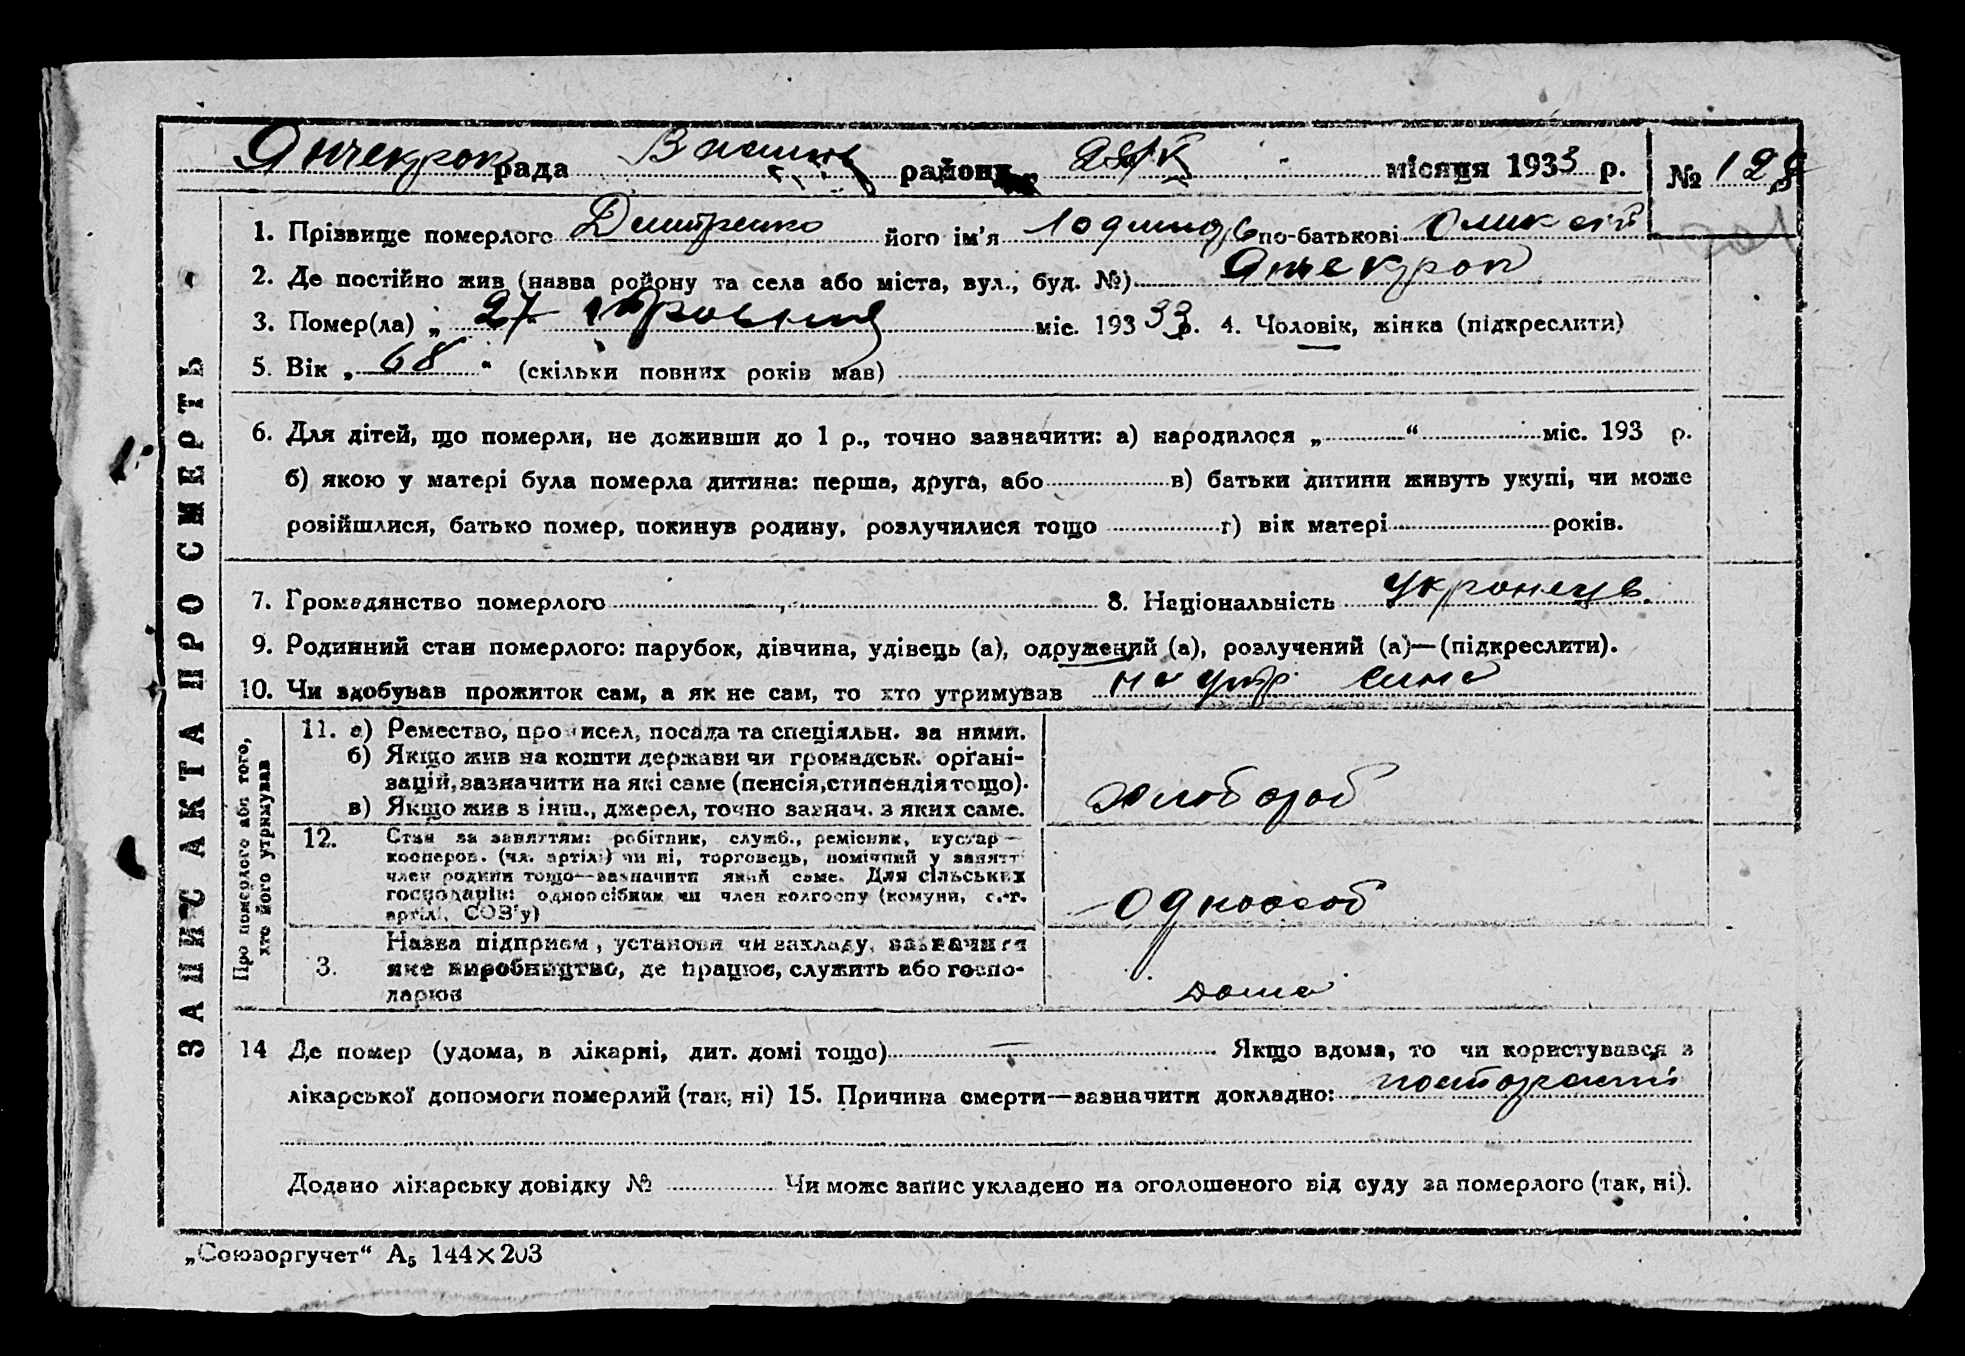 рада районн місяця 1933 р. № 128
1. Прізвище померлого Дмитренко його ім'я по-батькові
2. Де постійно жив (назва ройону та села або міста, вул., буд. №)
3. Помер(ла) „ 27 міс. 193 33 р. 4. Чоловік, жінка (підкреслити)
5. Вік „ 68 “ (скільки повних років мав)
6. Для дітей, що померли, не доживши до 1 р., точно зазначити: а) народилося „ “ міс. 193 р.
б) якою у матері була померла дитина: перша, друга, або в) батьки дитини живуть укупі, чи може
розійшлися, батько помер, покинув родину, розлучилися тощо г) вік матері років.
7. Громадянство померлого 8. Національність Українець
9. Родинний стан померлого: парубок, дівчина, удівець (а), одружений (а), розлучений (а)—(підкреслити).
10. Чи здобував прожиток сам, а як не сам, то хто утримував на утр. сина
ЗАПИС АКТА ПРО СМЕРТЬ
Про померлого або того, хто його утримував
11. а) Ремество, промисел, посада та спеціяльн. за ними.
б) Якщо жив на кошти держави чи громадськ. орґані-
зацій, зазначити на які саме (пенсія, стипендія тощо).
в) Якщо жив з інш., джерел, точно зазнач. з яких саме.
хлібороб
12. Стан за заняттям: робітник, служб., ремісник, кустар—
кооперов. (чл. артілі) чи ні, торговець, помічний у занятті
член родини тощо—зазначити який саме. Для сільських
господарів: одноосібник чи член колгоспу (комуни, с.-г.
артілі, СОЗ'у)
одноосоb
3. Назва підприєм, установи чи закладу, зазначити
яке виробництво, де працює, служить або госпо-
дарює
дома
14 Де помер (удома, в лікарні, дит. домі тощо) Якщо вдома, то чи користувався з
лікарської допомоги померлий (так, ні) 15. Причина смерти—зазначити докладно:
Додано лікарську довідку № Чи може запис укладено на оголошеного від суду за померлого (так, ні).
„Союзоргучет“ А5 144×203